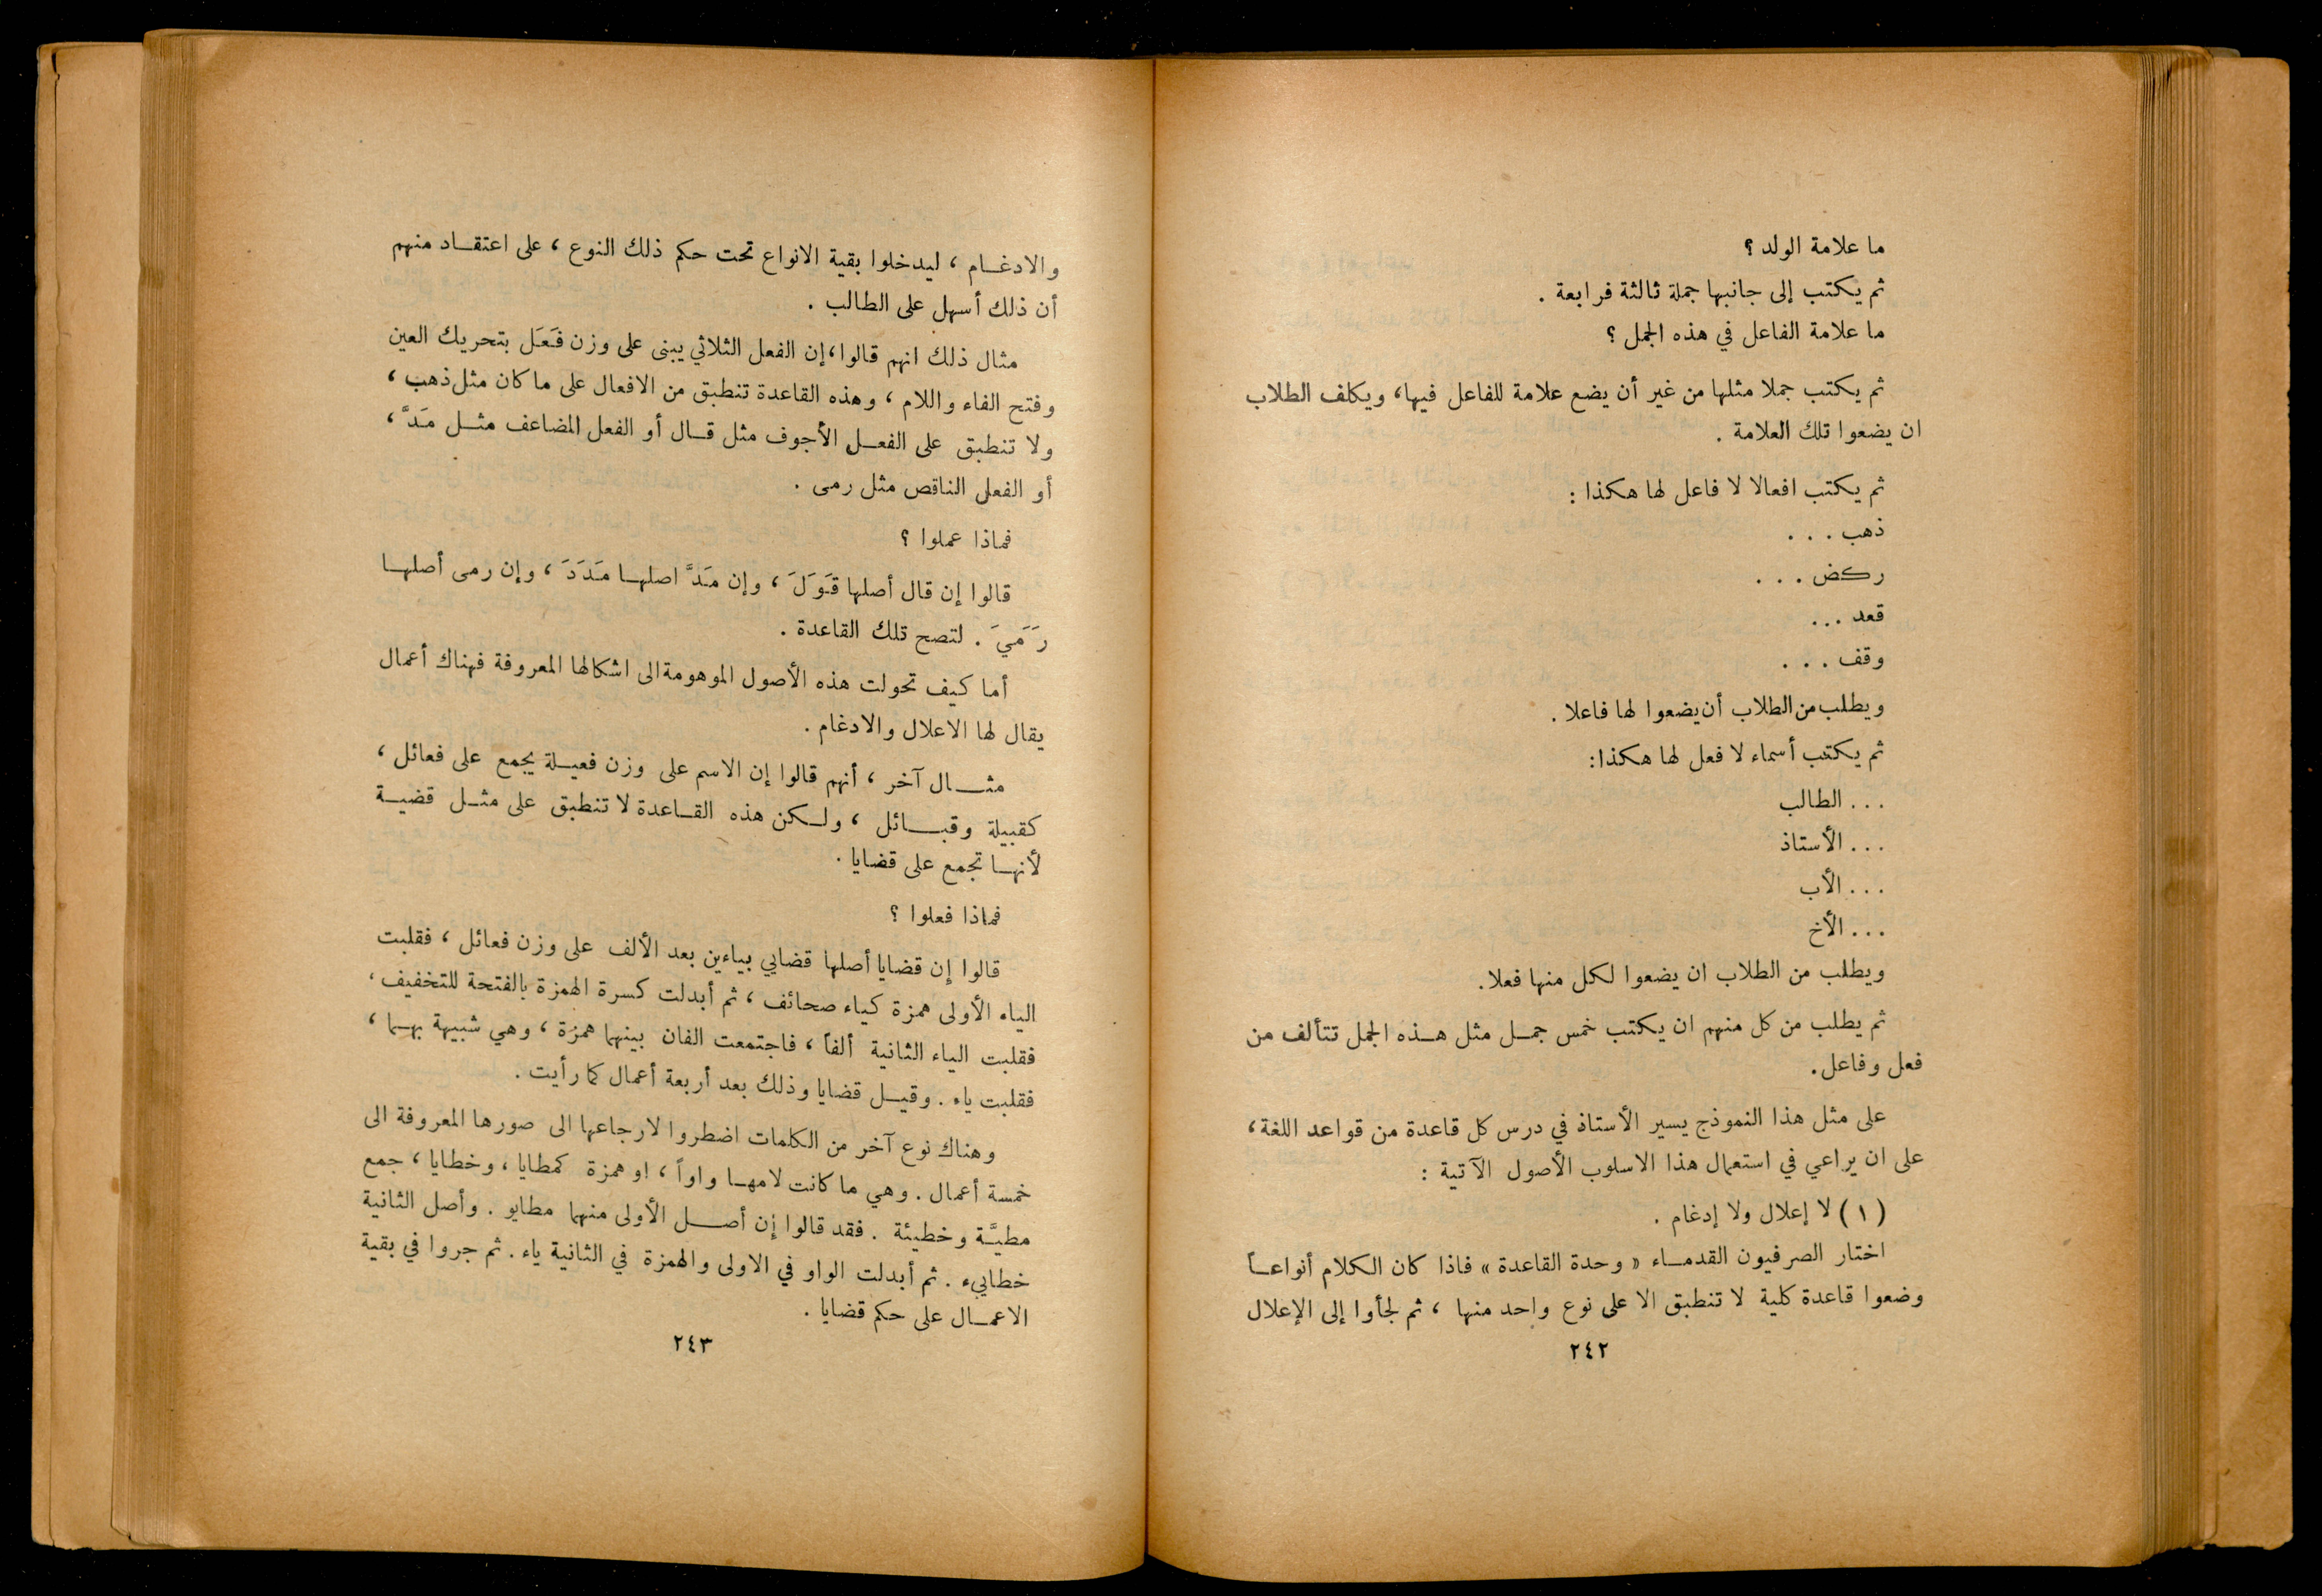 ما علامة الولد ؟
ثم يكتب إلى جانبها جملة ثالثة فرابعة .
ما علامة الفاعل في هذه الجمل ؟
ثم يكتب جملا مثلها من غير أن يضع علامة للفاعل فيها، ويكلف الطلاب
ان يضعوا تلك العلامة .
ثم يكتب افعالا لا فاعل لها هكذا :
ذهب . . .
ركض . . .
قعد ...
وقف . . .
ويطلب من الطلاب أن يضعوا لها فاعلا .
ثم يكتب أسماء لا فعل لها هكذا:
. . . الطالب
. . . الأستاذ
. . . الأب
. . . الأخ
ويطلب من الطلاب ان يضعوا لكل منها فعلا.
ثم يطلب من كل منهم ان يكتب خمس جمـل مثل هـذه الجمل تتألف من
فعل وفاعل.
على مثل هذا النموذج يسير الأستاذ في درس كل قاعدة من قواعد اللغة،
على ان يراعي في استعمال هذا الاسلوب الأصول الآتية :
(١) لا إعلال ولا إدغام .
اختار الصرفيون القدمـاء « وحدة القاعدة » فاذا كان الكلام أنواعـاً
وضعوا قاعدة كلية لا تنطبق الا على نوع واحد منها ، ثم لجأوا إلى الإعلال
٢٤٢
والادغـام ، ليدخلوا بقية الانواع تحت حكم ذلك النوع ، على اعتقـاد منهم
أن ذلك أسهل على الطالب .
مثال ذلك انهم قالوا، إن الفعل الثلاثي يبنى على وزن فَعَل بتحريك العين
وفتح الفاء واللام ، وهذه القاعدة تنطبق من الافعال على ما كان مثل ذهب ،
ولا تنطبق على الفعـل الأجوف مثل قـال أو الفعل المضاعف مثـل مَدَّ ،
أو الفعل الناقص مثل رمى .
فماذا عملوا ؟
قالوا إن قال أصلها قَوَلَ ، وإن مَدَّ اصلهـا مَدَدَ ، وإن رمى أصلهـا
رَمَيَ . لتصح تلك القاعدة .
أما كيف تحولت هذه الأصول الموهومة الى اشكالها المعروفة فهناك أعمال
يقال لها الاعلال والادغام .
مثــال آخر ، أنهم قالوا إن الاسم على وزن فعيـلة يجمع على فعائل ،
كقبيلة وقبــائل ، ولـكن هذه القـاعدة لا تنطبق على مثـل قضيـة
لأنهـا تجمع على قضايا .
فماذا فعلوا ؟
قالوا إن قضايا أصلها قضايي بياءين بعد الألف على وزن فعائل ، فقلبت
الياء الأولى همزة كياء صحائف ، ثم أبدلت كسرة الهمزة بالفتحة للتخفيف ،
فقلبت الياء الثانية ألفاً ، فاجتمعت الفان بينهما همزة ، وهي شبيهة بهـما ،
فقلبت ياء . وقيـل قضايا وذلك بعد أربعة أعمال كما رأيت .
وهناك نوع آخر من الكلمات اضطروا لارجاعها الى صورها المعروفة الى
خمسة أعمال . وهي ما كانت لامهـا واواً ، او همزة كمطايا ، وخطايا ، جمع
مطيَّـة وخطيئة . فقد قالوا إن أصــل الأولى منهما مطايو . وأصل الثانية
خطاييء . ثم أبدلت الواو في الاولى والهمزة في الثانية ياء . ثم جروا في بقية
الاعمـال على حكم قضايا .
٢٤٣